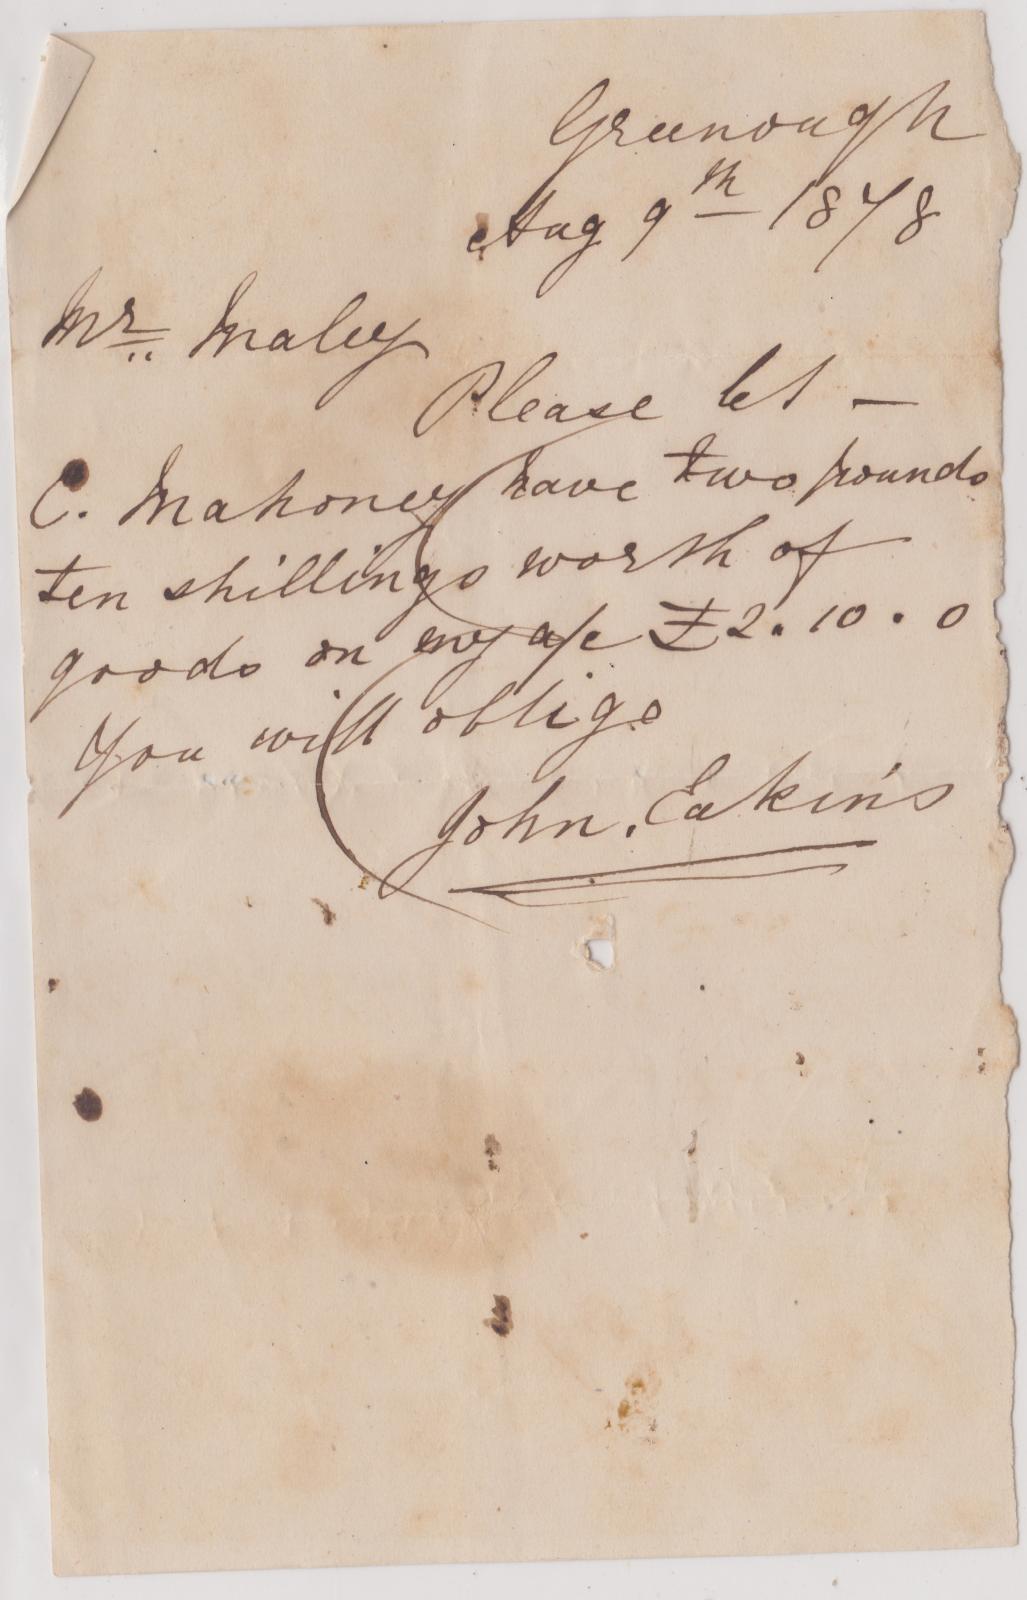 Greenough
Aug 9th 1878
Mr. Maley
Please let —
C. Mahoney have two pounds
ten shillings worth of
goods on my a/c £2.10.0
You will oblige
John. Eakins